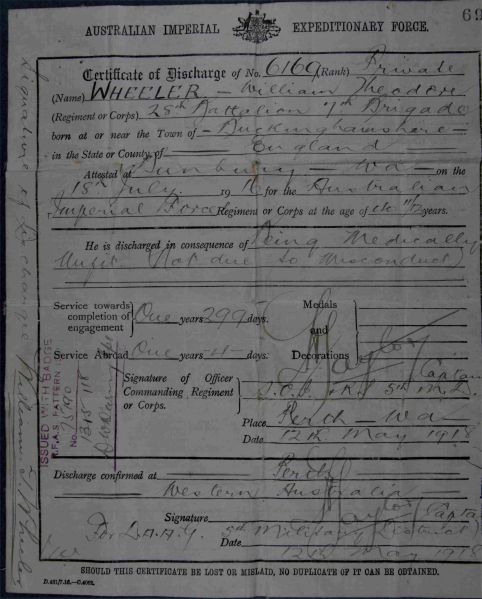 69
AUSTRALIAN IMPERIAL EXPEDITIONARY FORCE.
Certificate of Discharge of No. 6169 (Rank) Private
(Name) WHEELER - William Theodore
(Regiment or Corps) 28th Battalion 7th Brigade
born at or near the Town of - Buckinghamshire -
in the State or County of England
Attested at Bunbury - Wa - on the
18th July 1916 for the Australian
Imperial Force Regiment or Corps at the age of 11/12 years.
He is discharged in consequence of Being Medically
Unfit (Not due to Misconduct)
Service towards completion of engagement } One years 299 days.
Medals and Decorations
Service Abroad One years days.
Signature of Officer Commanding Regiment or Corps. Taylor Captain
5th M.D.
Place Perth - Wa
Date 12th May 1918
Discharge confirmed at Perth
Western Australia
Signature Taylor Captain
For 5th Military District
Date 12th May 1918
SHOULD THIS CERTIFICATE BE LOST OR MISLAID, NO DUPLICATE OF IT CAN BE OBTAINED.
Signature of Dischargee William T. Wheeler
ISSUED WITH BADGE
No.